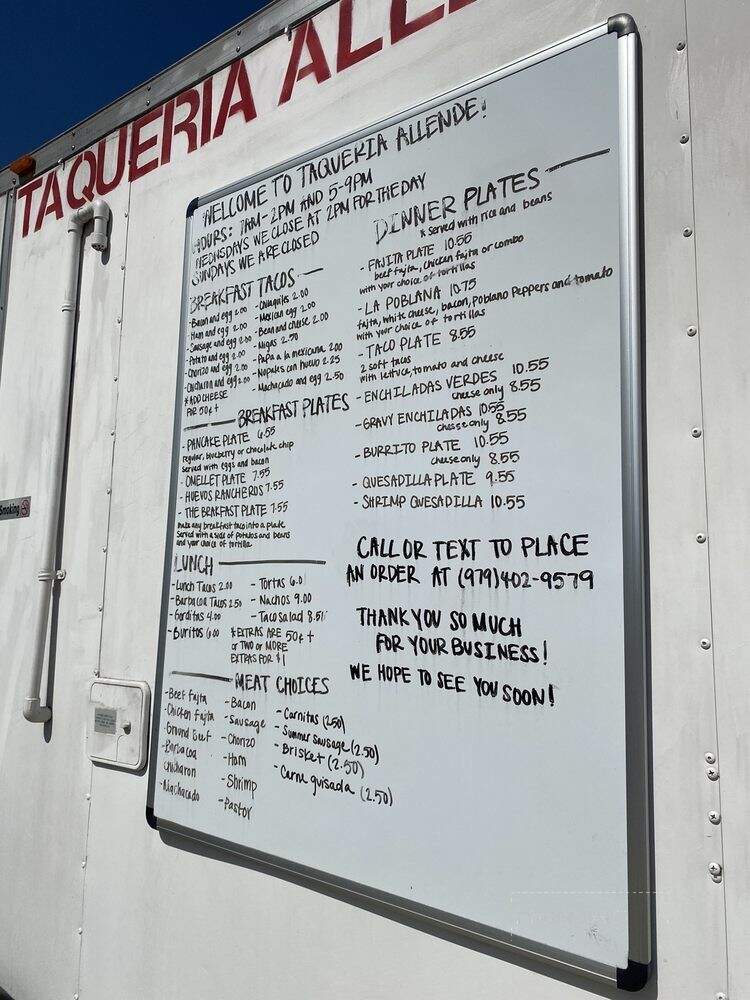 TAQUERIA ALLE
WELCOME TO TAQUERIA ALLENDE!
HOURS: 7AM-2PM AND 5-9PM
WEDNSDAYS WE CLOSE AT 2PM FOR THE DAY
SUNDAYS WE ARE CLOSED
BREAKFAST TACOS
-Bacon and egg 2.00
-Ham and egg 2.00
-Sausage and egg 2.00
-Potato and egg 2.00
-Chorizo and egg 2.00
-Chicharon and egg 2.00
*ADD CHEESE
FOR 50¢+
-Chilaquiles 2.00
-Mexican egg 2.00
-Bean and cheese 2.00
-Migas 2.50
-Papa a la mexicana 2.00
-Nopales con huevo 2.25
-Machacado and egg 2.50
BREAKFAST PLATES
-PANCAKE PLATE 6.55
regular, blueberry or chocolate chip
Served with eggs and bacon
-OMELLET PLATE 7.55
-HUEVOS RANCHEROS 7.55
-THE BRAKFAST PLATE 7.55
make any breakfast taco into a plate
Served with a side of potatos and beans
and your choice of tortilla
LUNCH
-Lunch Tacos 2.00
-Barbacoa Tacos 2.50
-Gorditas 4.00
-Buritos 6.00
-Tortas 6.0
-Nachos 9.00
-Taco Salad 8.5
*EXTRAS ARE 50¢+
or TWO or MORE
EXTRAS FOR $1
MEAT CHOICES
-Beef fajita
-Chicken fajita
-Ground beef
-Barbacoa
-Chicharon
-Machacado
-Bacon
-Sausage
-Chorizo
-Ham
-Shrimp
-Pastor
-Carnitas (2.50)
-Summer sausage (2.50)
-Brisket (2.50)
-Carne guisada (2.50)
DINNER PLATES
*Served with rice and beans
-FAJITA PLATE 10.55
beef fajita, chicken fajita or combo
with your choice of tortillas
-LA POBLANA 10.75
fajita, white cheese, bacon, Poblano Peppers and tomato
with your choice of tortillas
-TACO PLATE 8.55
2 soft tacos
with lettuce, tomato and cheese
-ENCHILADAS VERDES 10.55
cheese only 8.55
-GRAVY ENCHILADAS 10.55
cheese only 8.55
-BURRITO PLATE 10.55
cheese only 8.55
-QUESADILLA PLATE 9.55
-SHRIMP QUESADILLA 10.55
CALL OR TEXT TO PLACE
AN ORDER AT (979)402-9579
THANK YOU SO MUCH
FOR YOUR BUSINESS!
WE HOPE TO SEE YOU SOON!
Smoking